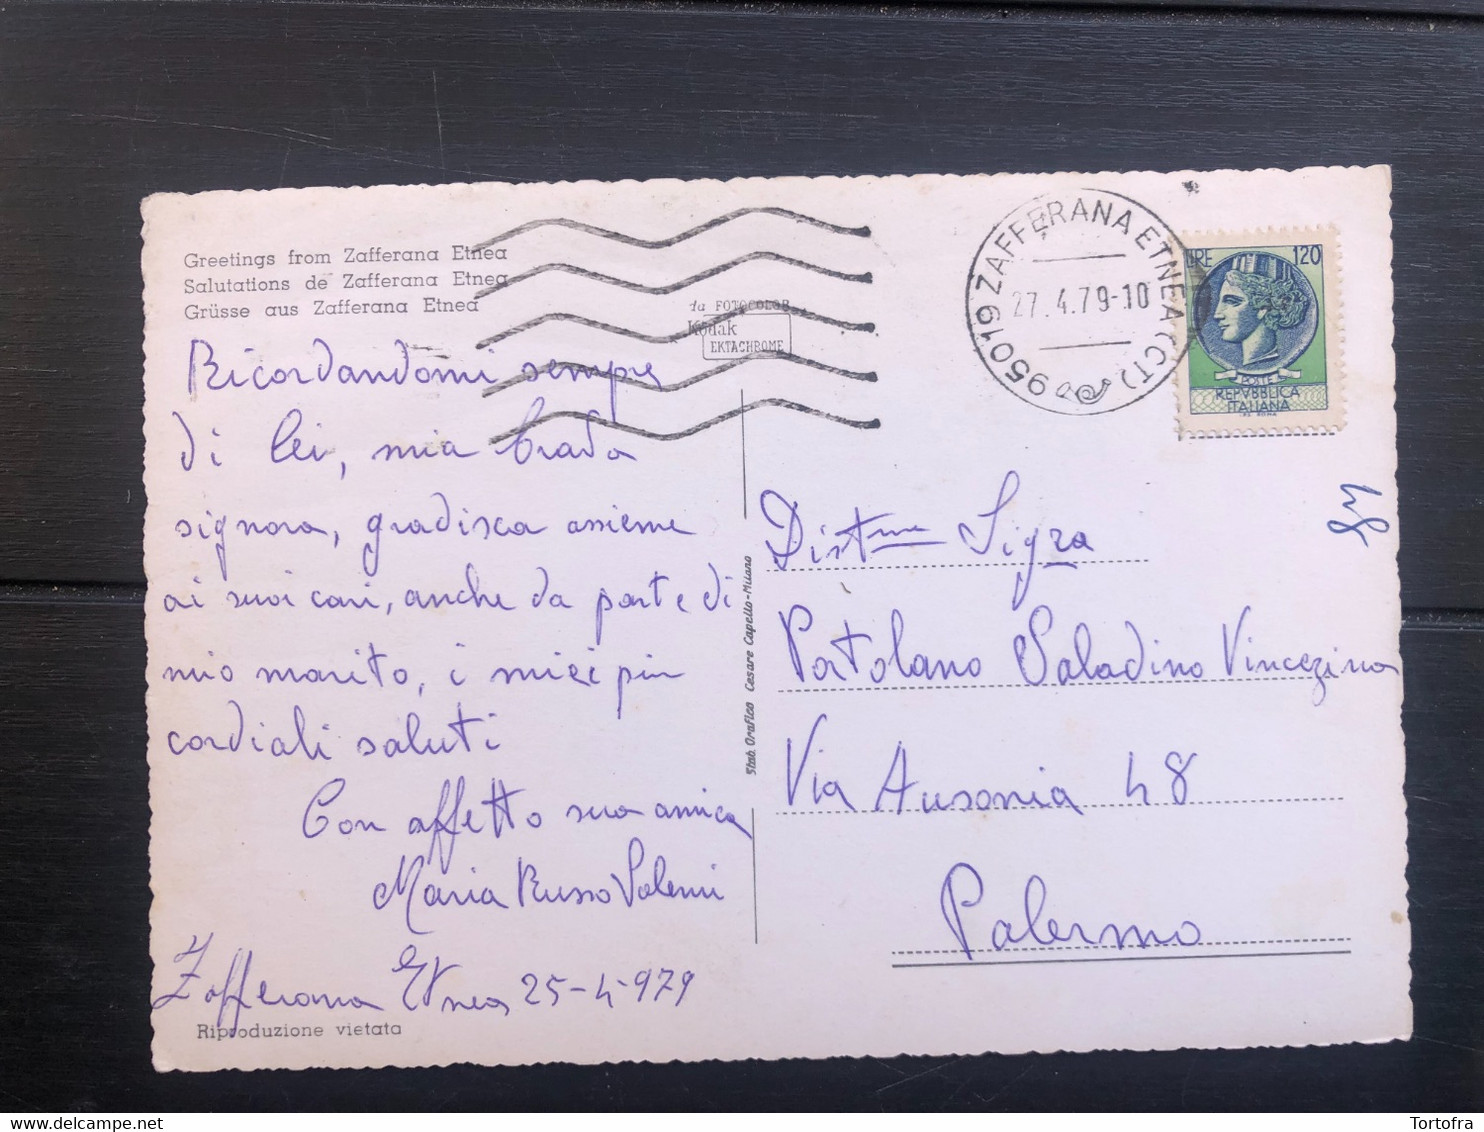 Greetings from Zafferana Etnea
Salutations de Zafferana Etnea
Grüsse aus Zafferana Etnea
1a FOTOCOLOR
Kodak
EKTACHROME
Ricordandomi sempre
di lei, mia brada
signora, gradisca assieme
ai suoi cari, anche da parte di
mio marito, i miei più
cordiali saluti
Con affetto sua amica
Maria Russo Salemi
Zafferana Etnea 25-4-979
Riproduzione vietata
Stab. Grafico Cesare Capello-Milano
95019 ZAFFERANA ETNEA (CT)
27.4.79-10
LIRE 120
POSTE
REPVBBLICA
ITALIANA
I.P.S. ROMA
Distme Sigra
Portolano Saladino Vincezina
Via Ausonia 48
Palermo
Tortofra